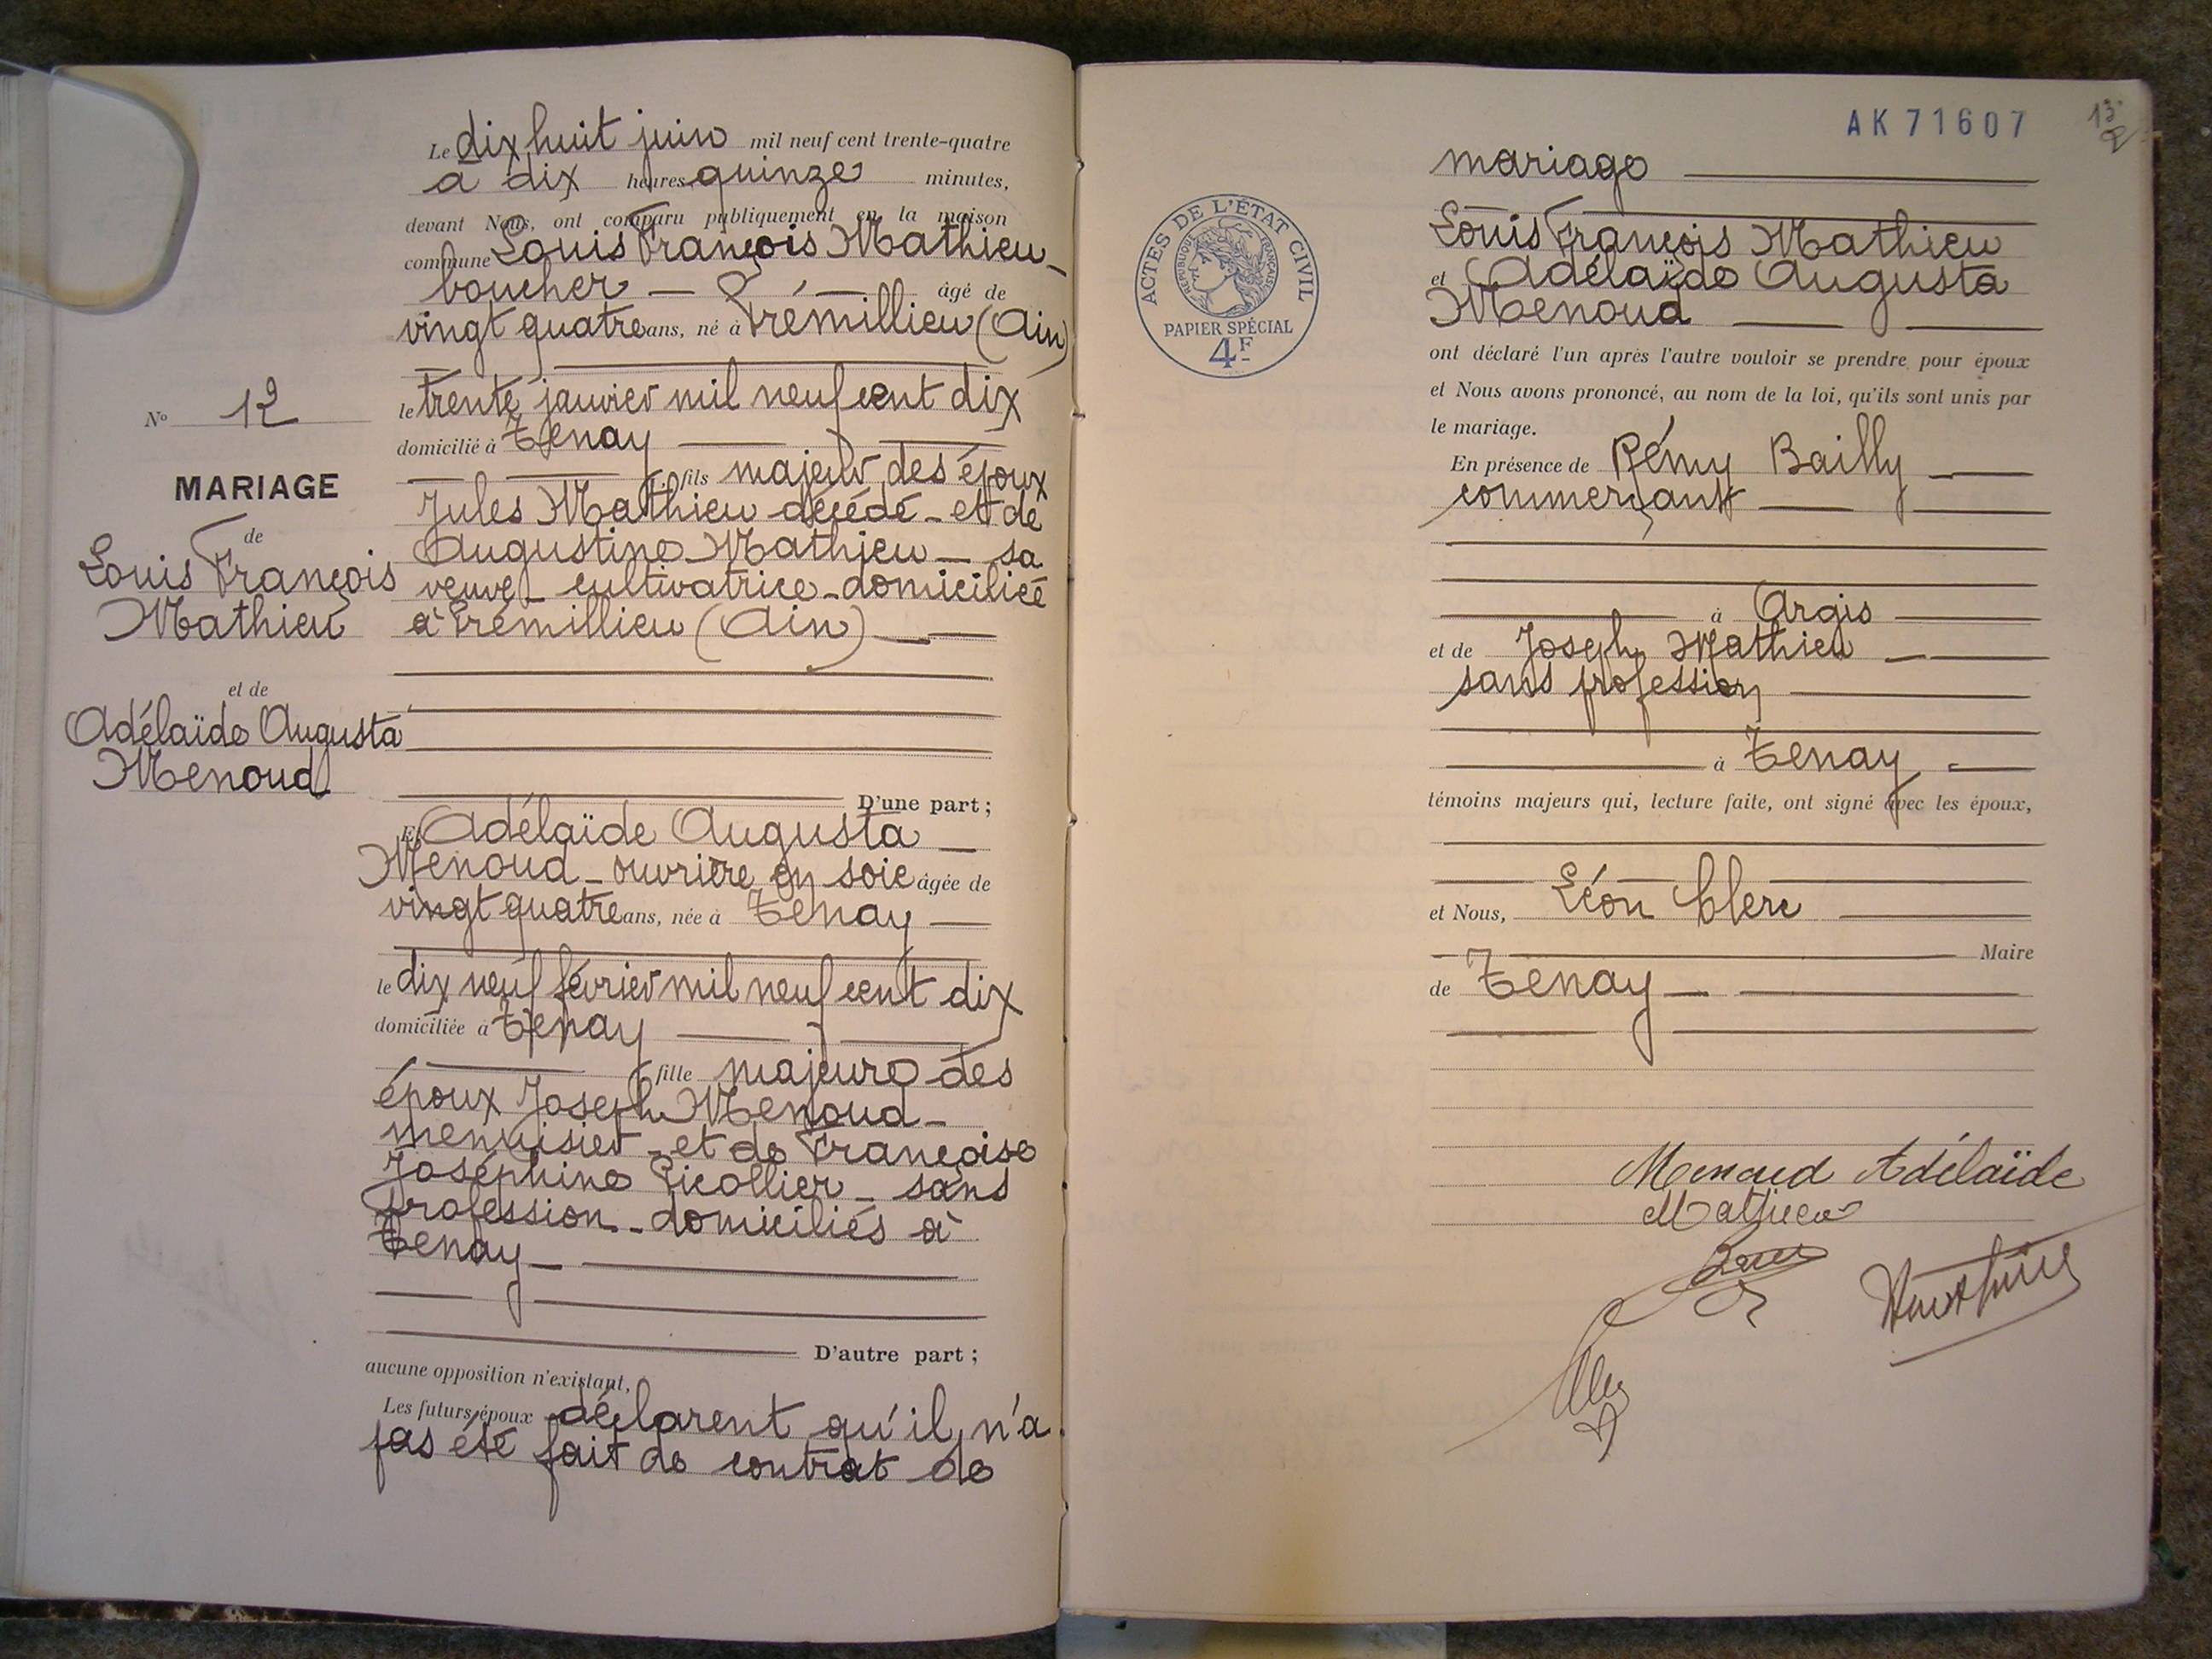 Le dix huit juin mil neuf cent trente-quatre
à dix heures quinze minutes,
devant Nous, ont comparu publiquement en la maison
commune Louis François Mathieu
boucher âgé de
vingt quatre ans, né à Prémillieu (Ain)
le trente janvier mil neuf cent dix
domicilié à Tenay
fils majeur des époux
Jules Mathieu décédé et de
Augustine Mathieu sa
veuve cultivatrice domiciliée
à Prémillieu (Ain)
D'une part;
Et Adélaïde Augusta
Menoud ouvrière en soie âgée de
vingt quatre ans, née à Tenay
le dix neuf février mil neuf cent dix
domiciliée à Tenay
fille majeure des
époux Joseph Menoud
menuisier et de Françoise
Joséphine Picollier sans
profession domiciliés à
Tenay
D'autre part;
aucune opposition n'existant,
Les futurs époux déclarent qu'il n'a
pas été fait de contrat de
No 12
MARIAGE
de
Louis François
Mathieu
et de
Adélaïde Augusta
Menoud
AK 71607
13
ACTES DE L'ÉTAT CIVIL
RÉPUBLIQUE FRANÇAISE
PAPIER SPÉCIAL
4F
mariage
Louis François Mathieu
et Adélaïde Augusta
Menoud
ont déclaré l'un après l'autre vouloir se prendre pour époux
et Nous avons prononcé, au nom de la loi, qu'ils sont unis par
le mariage.
En présence de Rémy Bailly
commerçant
à Argis
et de Joseph Mathieu
sans profession
à Tenay
témoins majeurs qui, lecture faite, ont signé avec les époux,
et Nous, Léon Clerc
Maire
de Tenay
Menoud Adélaïde
Mathieu